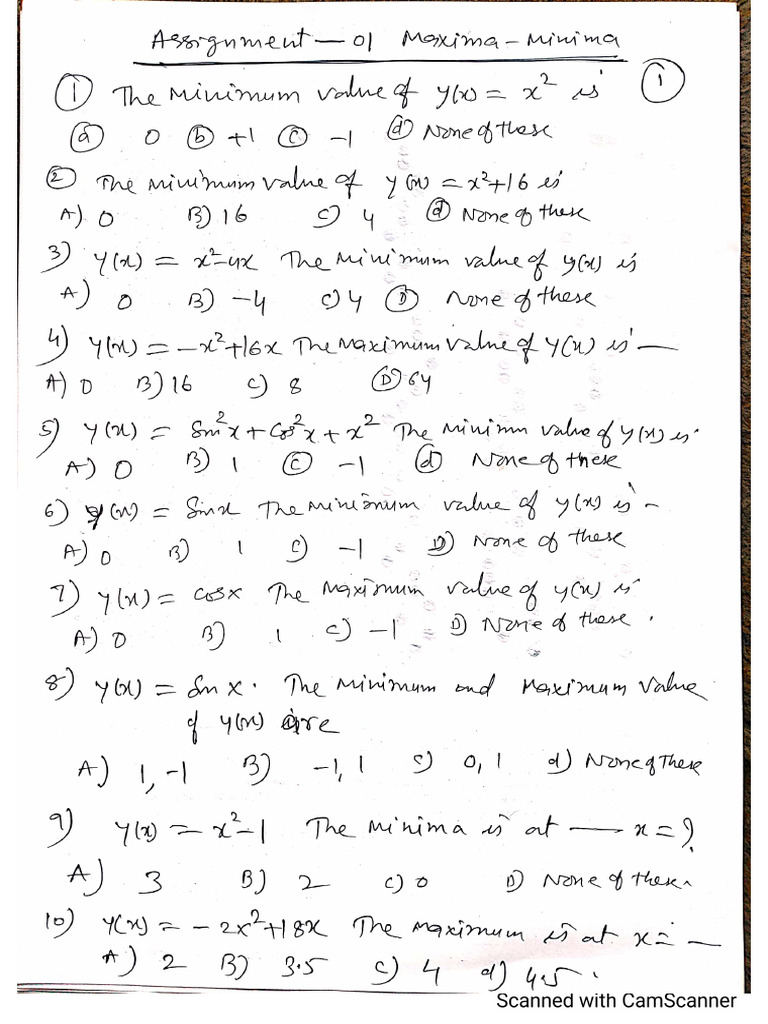 Assignment — 01 Maxima - Minima
① The Minimum value of y(x) = x² is ①
ⓐ 0 ⓑ +1 ⓒ -1 ⓓ None of these
② The Minimum value of y(x) = x²+16 is
A) 0 B) 16 C) 4 ⓓ None of these
3) y(x) = x²-4x The Minimum value of y(x) is
A) 0 B) -4 C) 4 Ⓓ None of these
4) y(x) = -x²+16x The Maximum value of y(x) is —
A) 0 B) 16 C) 8 Ⓓ 64
5) y(x) = Sin²x + Cos²x + x² The Minimn value of y(x) is
A) 0 B) 1 ⓒ -1 ⓓ None of these
6) y(x) = Sinx The Minimum value of y(x) is -
A) 0 B) 1 C) -1 D) None of these
7) y(x) = cosx The Maximum value of y(x) is
A) 0 B) 1 C) -1 D) None of these .
8) y(x) = Sin x . The Minimum and Maximum value
of y(x) are
A) 1, -1 B) -1, 1 C) 0, 1 d) None of these
9) y(x) = x²-1 The Minima is at — x = ?
A) 3 B) 2 C) 0 D) None of these.
10) y(x) = - 2x²+18x The Maximum is at x = —
A) 2 B) 3.5 C) 4 d) 4.5 .
Scanned with CamScanner